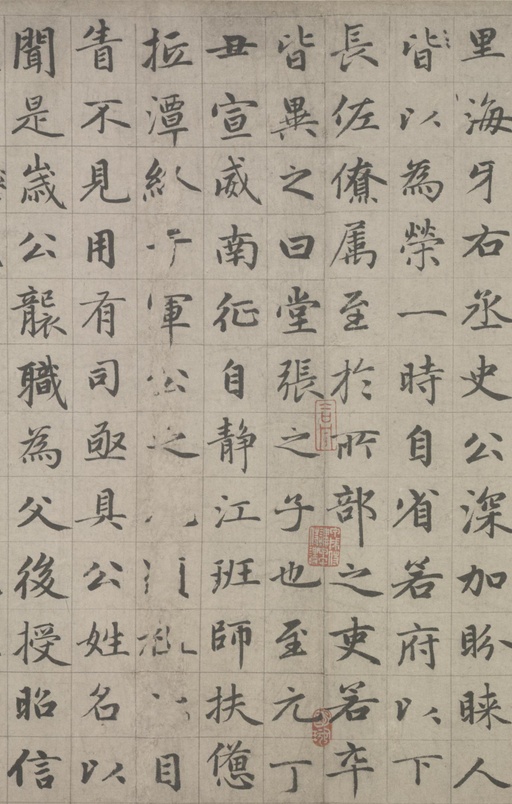 里海牙右丞史公深加盼睐人
皆以為榮一時自省若府以下
長佐僚属至於所部之吏若卒
皆異之曰堂張之子也至元丁
丑宣威南征自静江班師扶憊
抵潭 于軍公之 以目
眚不見用有司亟具公姓名以
聞是歲公襲職為父後授昭信